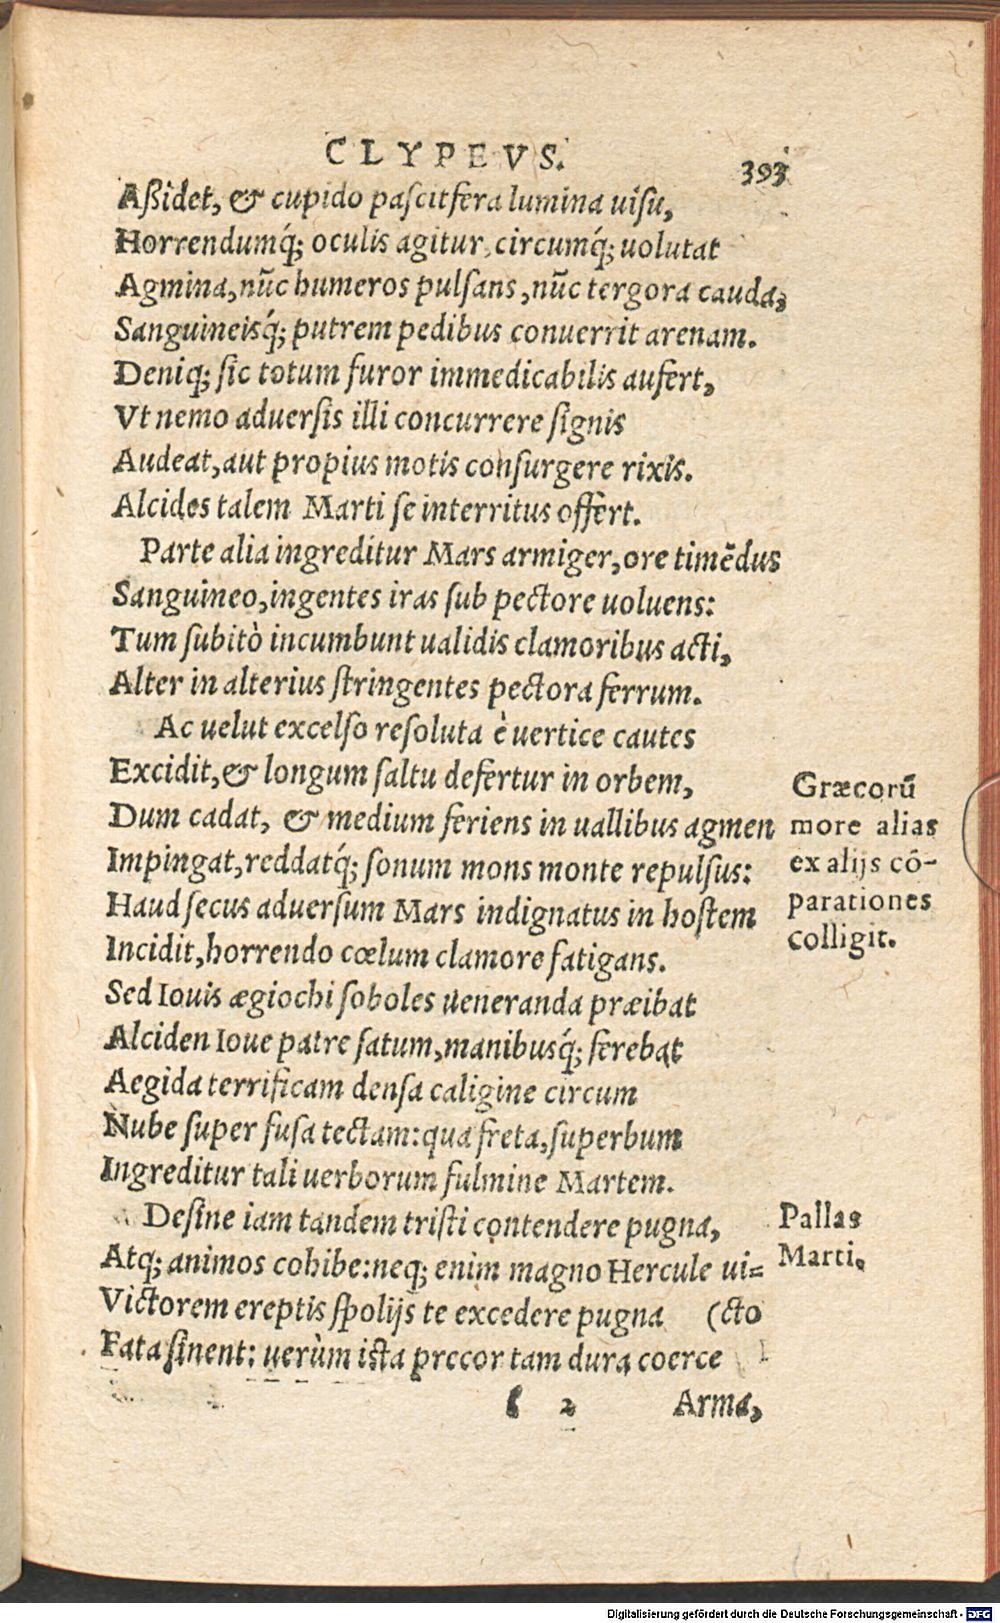 CLYPEVS. 393
Aßidet, & cupido paſcit fera lumina uiſu,
Horrendumq́; oculis agitur, circumq́; uolutat
Agmina, nũc humeros pulſans, nũc tergora cauda,
Sanguineisq́; putrem pedibus conuerrit arenam.
Deniq; ſic totum furor immedicabilis aufert,
Vt nemo aduerſis illi concurrere ſignis
Audeat, aut propius motis conſurgere rixis.
Alcides talem Marti ſe interritus offert.
Parte alia ingreditur Mars armiger, ore timẽdus
Sanguineo, ingentes iras ſub pectore uoluens:
Tum ſubitò incumbunt ualidis clamoribus acti,
Alter in alterius ſtringentes pectora ferrum.
Ac uelut excelſo reſoluta è uertice cautes
Excidit, & longum ſaltu defertur in orbem,
Dum cadat, & medium feriens in uallibus agmen
Impingat, reddatq́; ſonum mons monte repulſus:
Haud ſecus aduerſum Mars indignatus in hoſtem
Incidit, horrendo cœlum clamore fatigans.
Græcorũ
more alias
ex alijs cõ-
parationes
colligit.
Sed Iouis ægiochi ſoboles ueneranda præibat
Alciden Ioue patre ſatum, manibusq́; ferebat
Aegida terrificam denſa caligine circum
Nube ſuper fuſa tectam: qua freta, ſuperbum
Ingreditur tali uerborum fulmine Martem.
Deſine iam tandem triſti contendere pugna,
Atq; animos cohibe: neq; enim magno Hercule ui=
Victorem ereptis ſpolijs te excedere pugna (cto
Fata ſinent: uerùm iſta precor tam dura coerce
Pallas
Marti.
2 Arma,
Digitalisierung gefördert durch die Deutsche Forschungsgemeinschaft - DFG